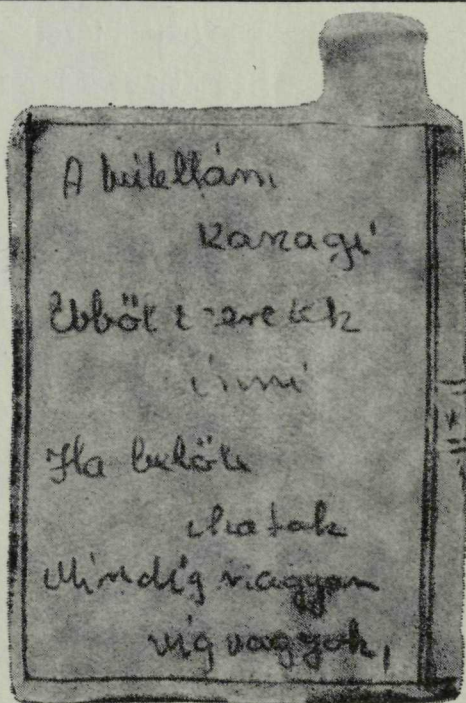 A butellám
Karagi
Ebből szeretek
inni
Ha belőle
ihatok
Mindig nagyon
víg vagyok,